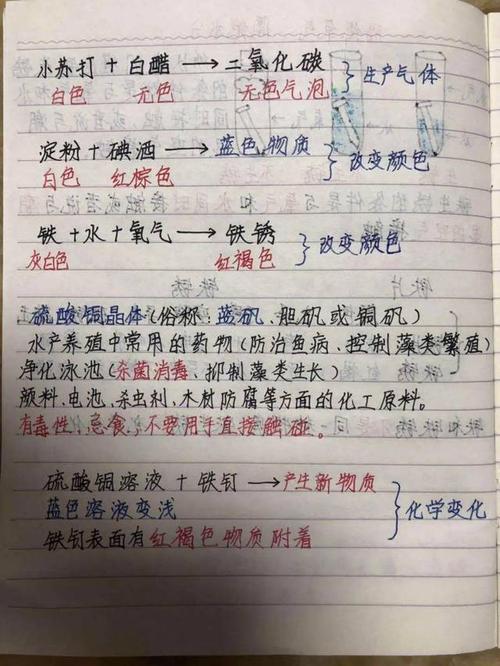 小苏打 + 白醋 → 二氧化碳 } 生产气体
白色 无色 无色气泡
淀粉 + 碘酒 → 蓝色物质 } 改变颜色
白色 红棕色
铁 + 水 + 氧气 → 铁锈 } 改变颜色
灰白色 红褐色
硫酸铜晶体(俗称,蓝矾、胆矾或铜矾)
水产养殖中常用的药物(防治鱼病、控制藻类繁殖)
净化泳池(杀菌消毒、抑制藻类生长)
颜料、电池、杀虫剂、木材防腐等方面的化工原料。
有毒性,忌食,不要用手直接触碰。
硫酸铜溶液 + 铁钉 → 产生新物质 } 化学变化
蓝色溶液变浅
铁钉表面有红褐色物质附着